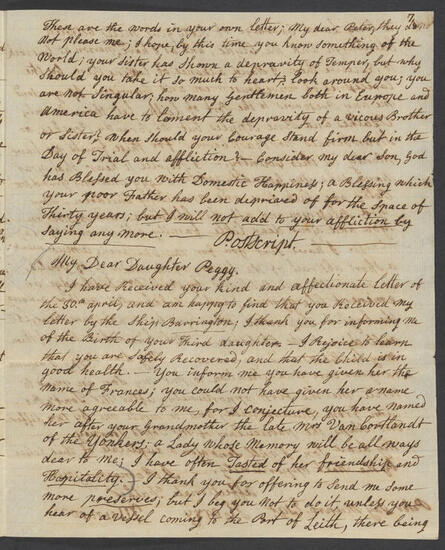 7
Then are the words in your own letter; My dear Peter, they do
not please me; I hope, by this time you know something of the
World; your Sister has shown a depravity of Temper, but why
should you take it so much to heart? look around you; you
are not Singular; how many Gentlemen both in Europe and
America have to Lament the depravity of a vicous Brother
or Sister; When should your Courage Stand firm but in the
Day of Trial and affliction? — Consider my dear Son, God
has Blessed you with Domestic Happiness; a Blessing which
your poor Father has been deprived of for the Space of
Thirty years; but I will not add to your affliction by
saying any more. —
Postscript. —
My Dear Daughter Peggy.
I have Received your kind and affectionate letter of
the 30.th april, and am happy to find that you Received my
letter by the Ship Barrington; I thank you for informing me
of the Birth of your Third daughter — I Rejoice to learn
that you are Safely Recovered, and that the Child is in
good health. — You inform me you have given her the
name of Frances; you could not have given her a name
more agreable to me, for I conjecture, you have named
her after your Grandmother the late Mrs Van Cortlandt
of the Yonkers; a Lady Whose Memory will be all ways
dear to me; I have often Tasted of her friendship and
Hospitality. I thank you for offering to Send me some
more preserves; but I beg you Not to do it, unless you
hear of a vessel coming to the Port of Leith, there being